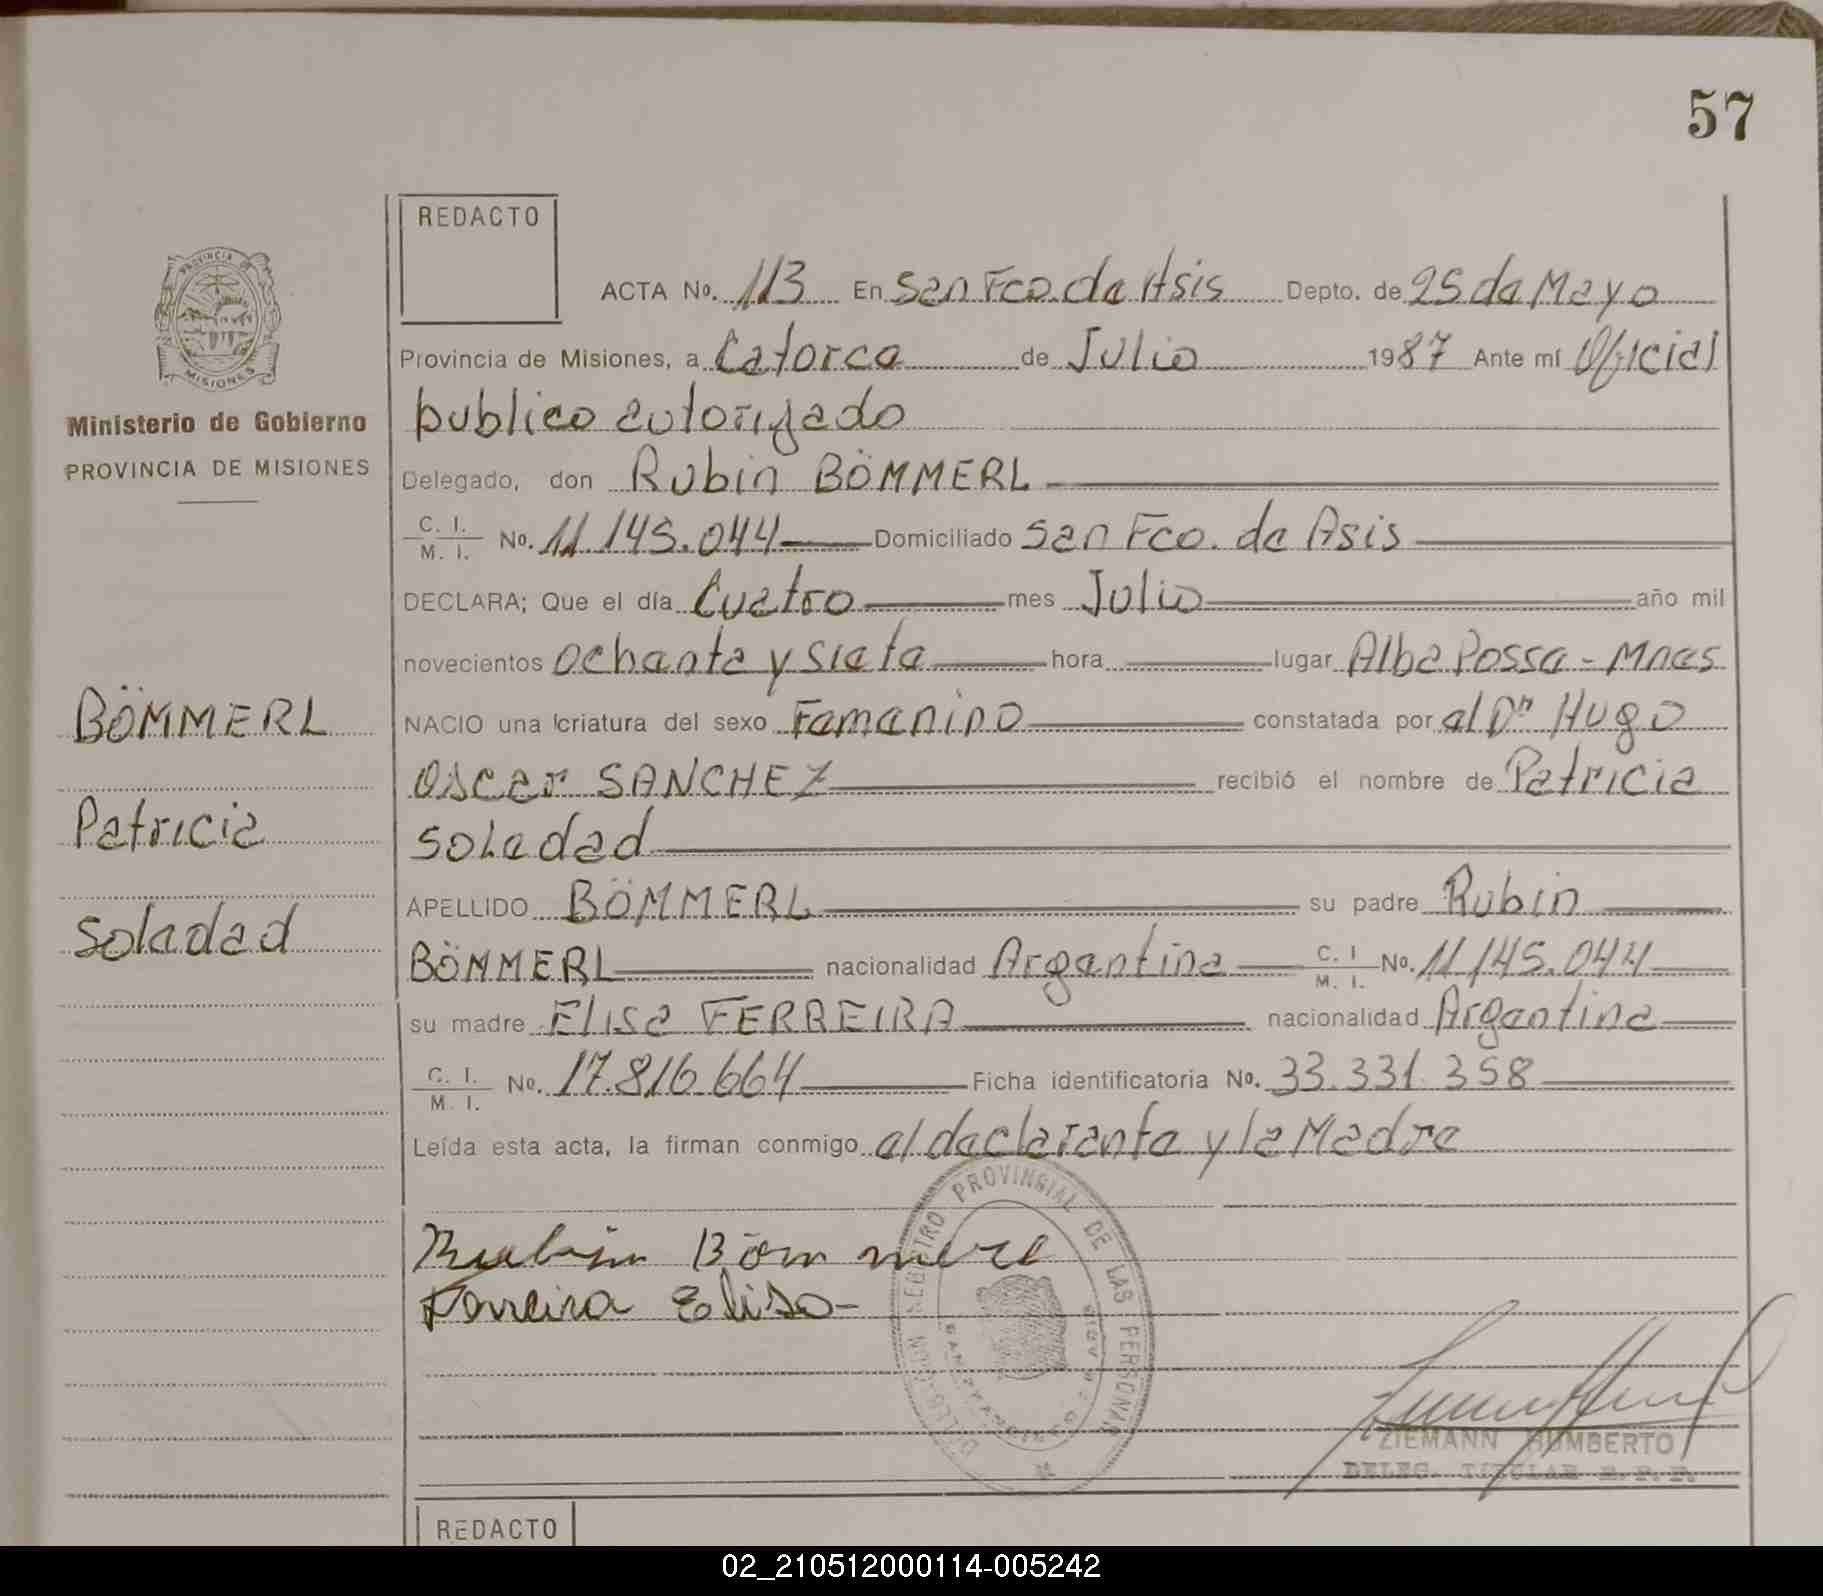 57
REDACTO
ACTA No. 113 En San Fco. de Asis Depto. de 25 de Mayo
Provincia de Misiones, a Catorce de Julio 1987 Ante mí Oficial
publico autorizado
Delegado, don Rubin BÖMMERL
C. I. M. I. No. 11.145.044 Domiciliado San Fco. de Asis
DECLARA; Que el día Cuatro mes Julio año mil
novecientos ochenta y siete hora lugar Alba Posse - Mnes
NACIO una criatura del sexo Femenino constatada por el Dr Hugo
Oscar SANCHEZ recibió el nombre de Patricia
Soledad
APELLIDO BÖMMERL su padre Rubin
BÖMMERL nacionalidad Argentina C. I M. I. No. 11.145.044
su madre Elisa FERREIRA nacionalidad Argentina
C. I. M. I. No. 17.816.664 Ficha identificatoria No. 33.331.358
Leída esta acta, la firman conmigo el declarante y la Madre
Rubin Bömmerl
Ferreira Elisa-
PROVINCIA DE
MISIONES
Ministerio de Gobierno
PROVINCIA DE MISIONES
BÖMMERL
Patricia
Soledad
REGISTRO PROVINCIAL DE LAS PERSONAS
ZIEMANN HUMBERTO
DELEG. TITULAR R. P. P.
REDACTO
02_210512000114-005242